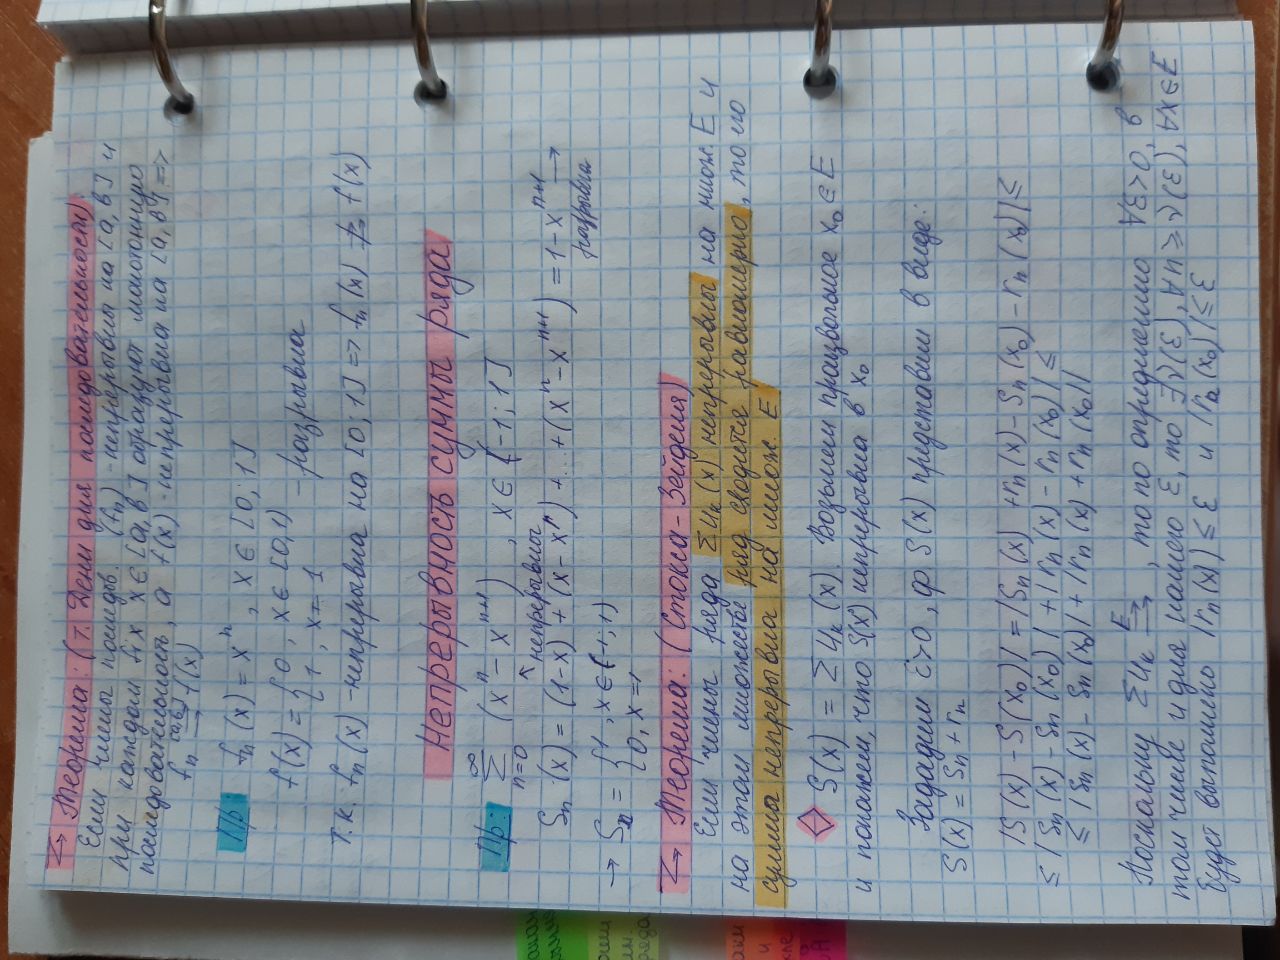 Теорема: (т. Дени для последовательности).
Если члены последов. (fn) - непрерывны на [a, b] и
при каждом fix x ∈ [a, b] образуют монотонную
последовательность, а f(x) - непрерывна на [a, b] =>
fn ⇉[a,b] f(x)
Пр: fn(x) = x^n, x ∈ [0; 1]
f(x) = {0, x ∈ [0,1) - разрывна
1, x = 1
Т.к. fn(x) - непрерывна на [0; 1] => fn(x) ⇉̸ f(x)
Непрерывность суммы ряда
Пр: ∑_{n=0}^{∞} (x^n - x^{n+1}), x ∈ (-1; 1]
↖ непрерывны
Sn(x) = (1-x) + (x - x^n) + ... + (x^n - x^{n+1}) = 1 - x^{n+1} →
разрывна
→ Sn = {1, x ∈ (-1; 1)
0, x = 1
Теорема: (Стокса - Зейделя)
Если члены ряда ∑uk(x) непрерывны на множ. E и
на этом множестве ряд сходится равномерно, то его
суммы непрерывна на множ. E
S(x) = ∑uk(x). Возьмем произвольное x0 ∈ E
и покажем, что S(x) непрерывна в x0
Зададим ε>0, ф. S(x) представим в виде:
S(x) = Sn + rn
|S(x) - S(x0)| = |Sn(x) + rn(x) - Sn(x0) - rn(x0)| ≤
≤ |Sn(x) - Sn(x0)| + |rn(x) - rn(x0)| ≤
≤ |Sn(x) - Sn(x0)| + |rn(x) + rn(x0)|
Поскольку ∑uk ⇉E, то по определению ∀ε>0, в
том числе и для нашего ε, то ∃N(ε), ∀n ≥ N(ε), ∀x∈E
будет выполнено |rn(x)| ≤ ε и |rn(x0)| ≤ ε